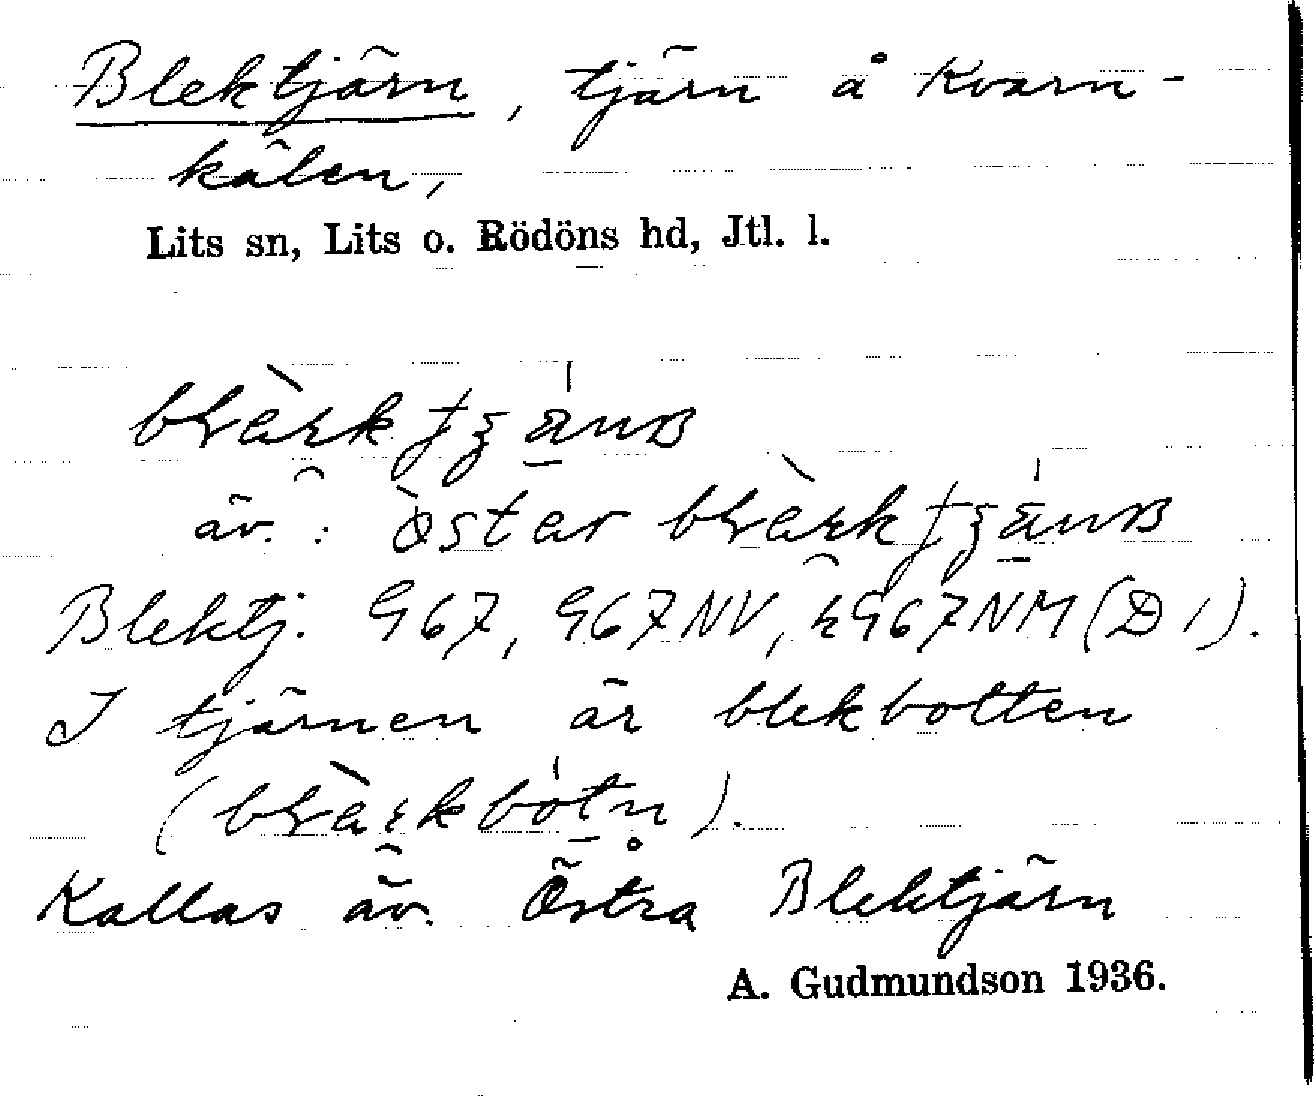 Blektjärn, tjärn å Kvarn-
kälen,
Lits sn, Lits o. Rödöns hd, Jtl. l.
äv.: östar
Blektj. G67, G67NV, hG67NM (D 1).
I tjärnen är blekbotten
Kallas äv. Östra Blektjärn
A. Gudmundson 1936.